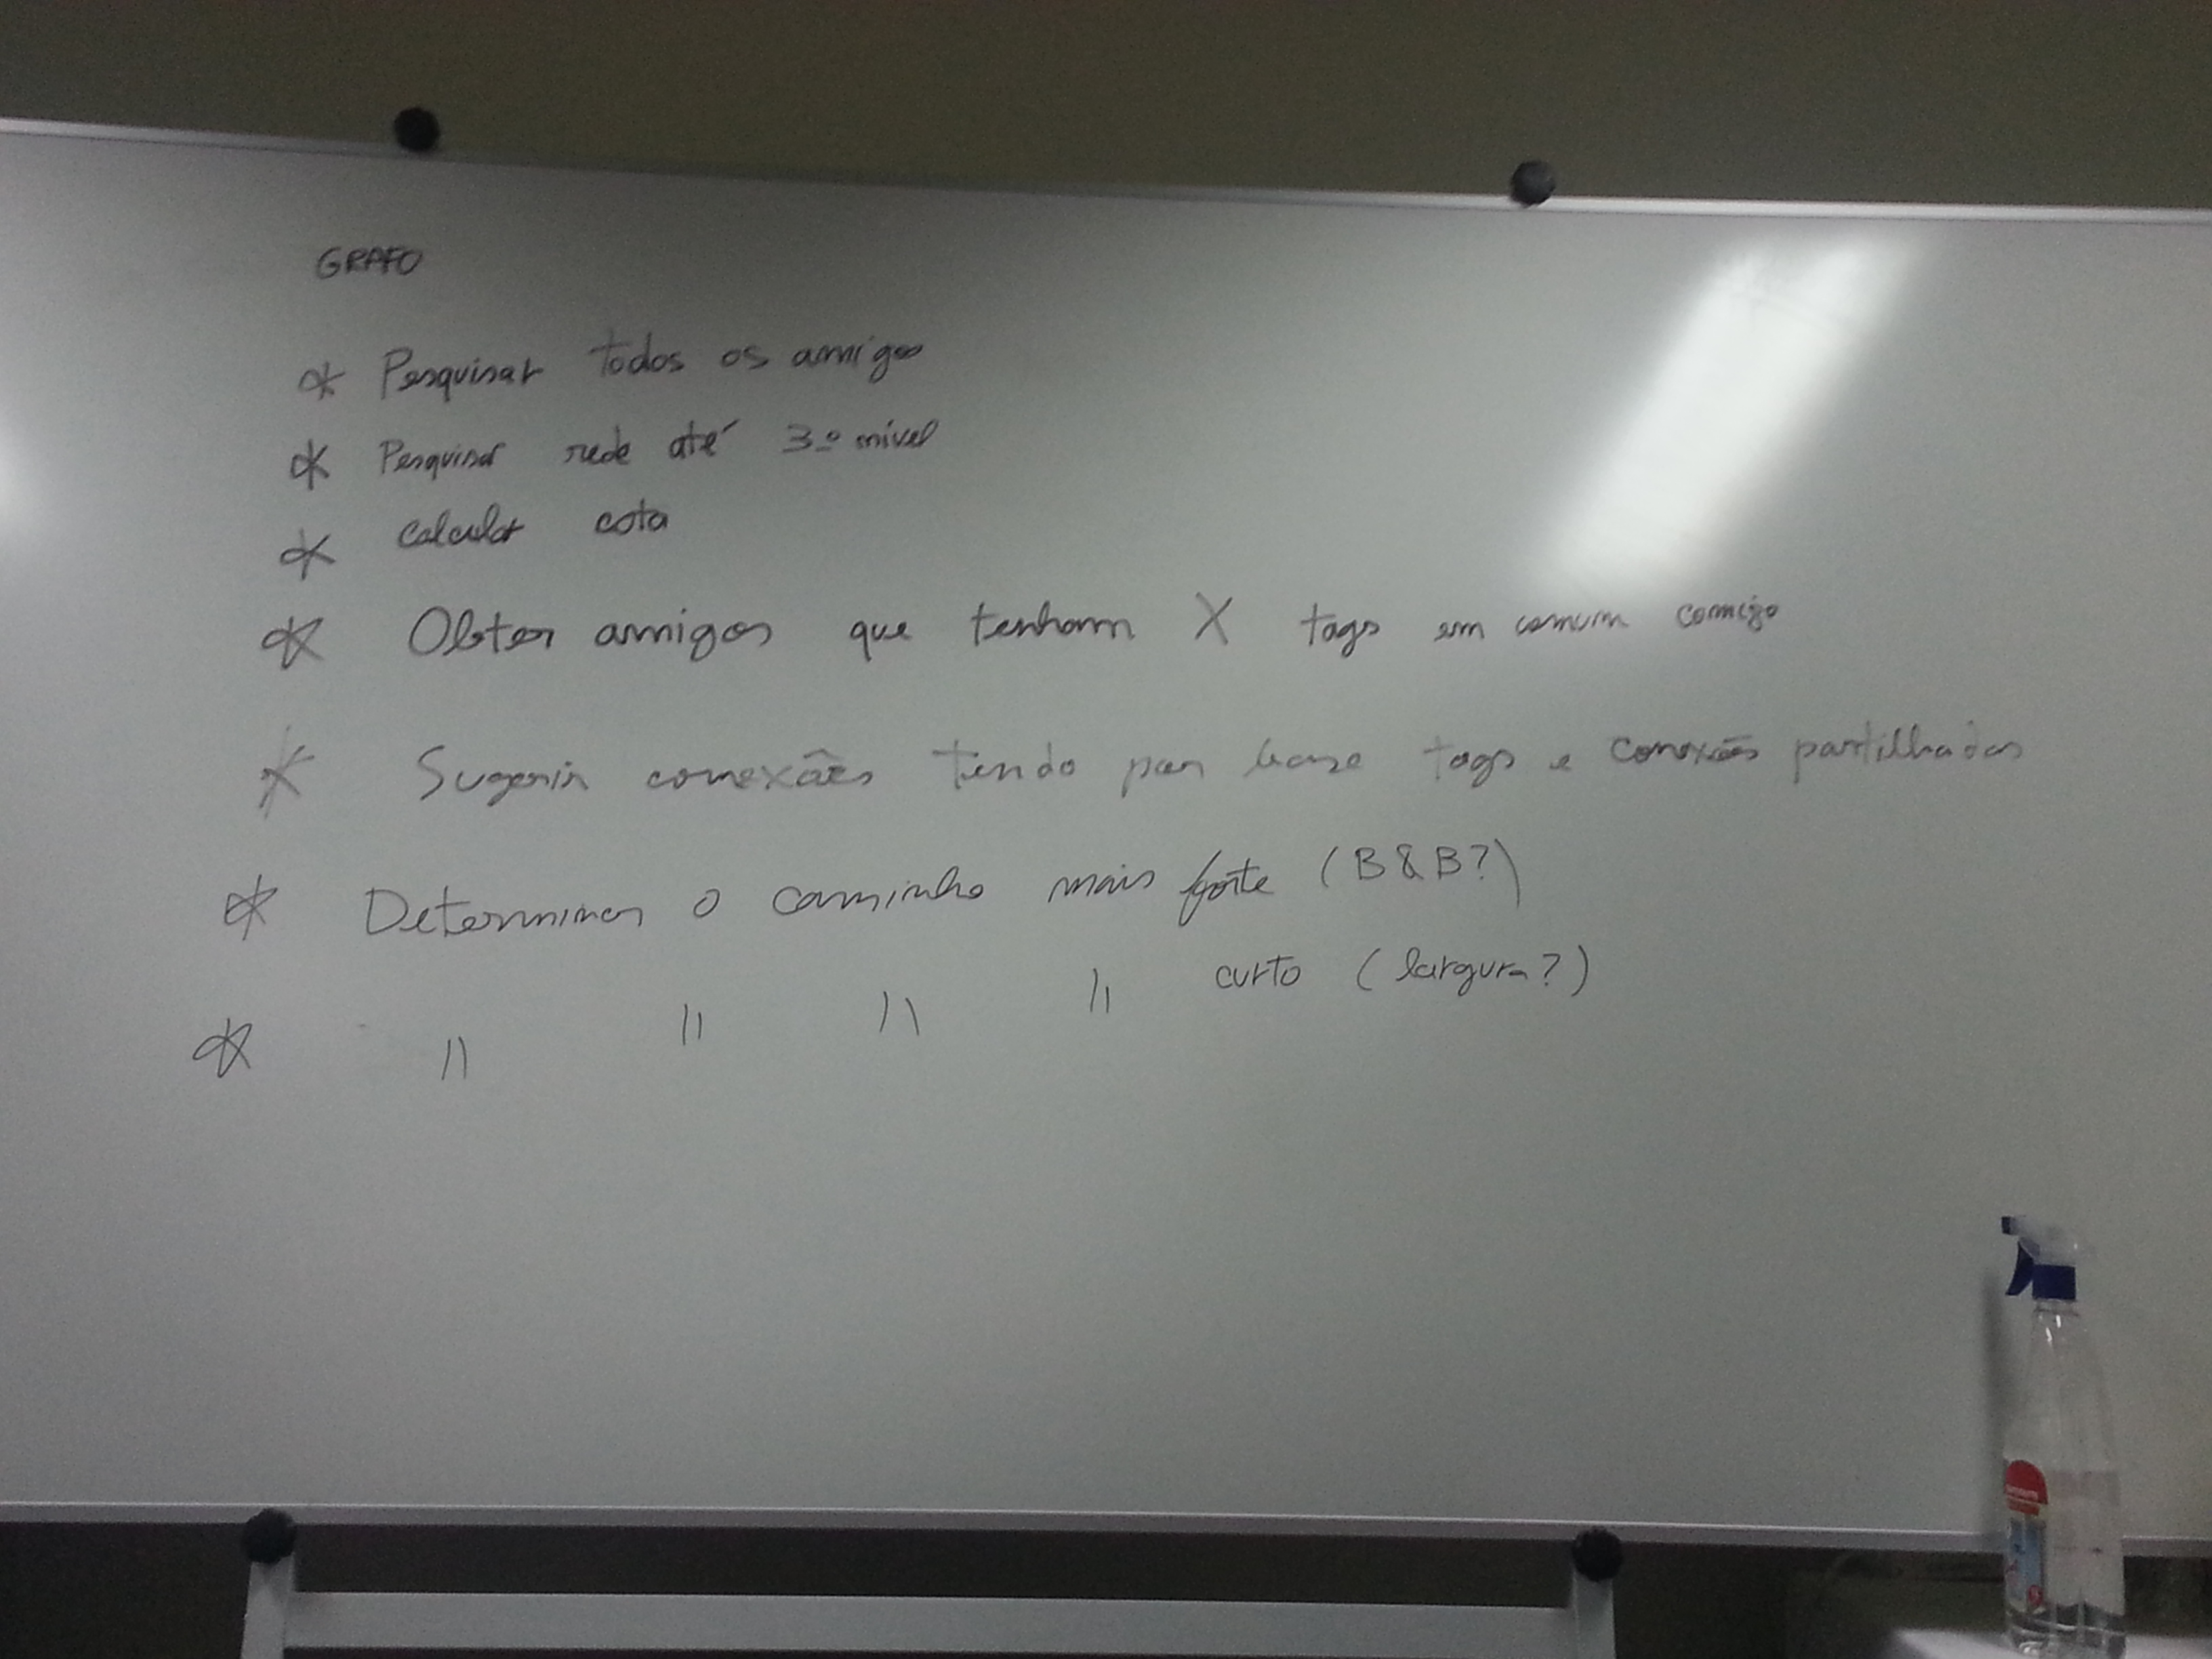 GRAFO
* Pesquisar todos os amigos
* Pesquisar rede até 3º nível
* Calcular cota
* Obter amigos que tenham X tags em comum comigo
* Sugerir conexões tendo por base tags e conexões partilhadas
* Determinar o caminho mais forte (B&B?)
* '' '' '' '' curto (largura?)